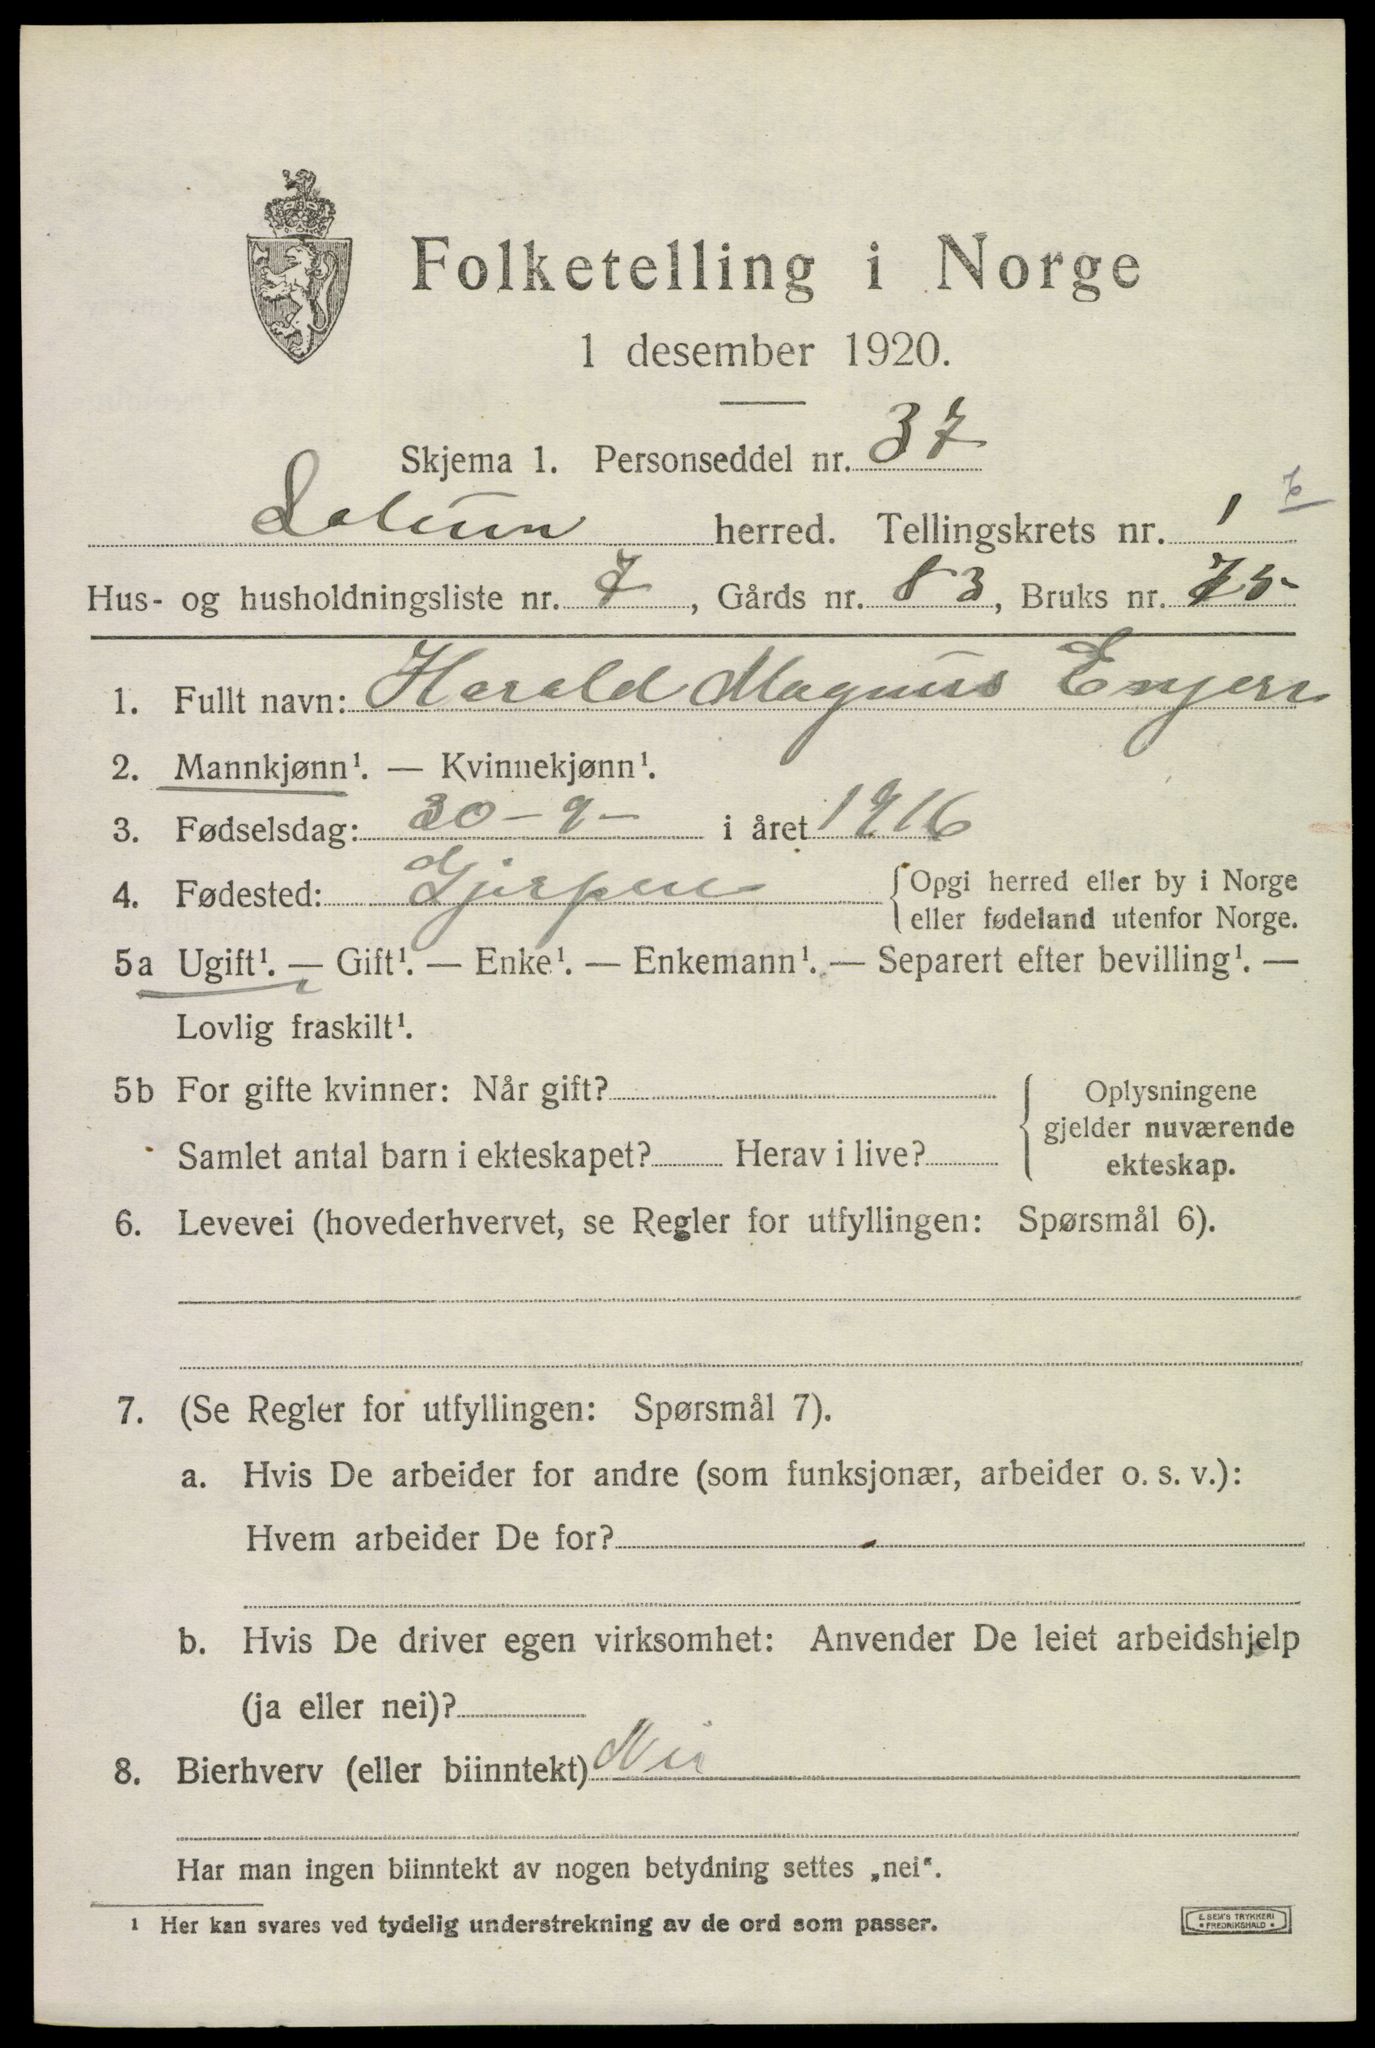 Folketelling i Norge
1 desember 1920.
Skjema 1. Personseddel nr. 37
Solum herred. Tellingskrets nr. 1
Hus- og husholdningsliste nr. 7, Gårds nr. 83, Bruks nr. 75
1. Fullt navn: Harald Magnus
2. Mannkjønn¹. — Kvinnekjønn¹.
3. Fødselsdag: 30-9- i året 1916
4. Fødested: Gjerpen {Opgi herred eller by i Norge
eller fødeland utenfor Norge.
5a Ugift¹. — Gift¹. — Enke¹. — Enkemann¹. — Separert efter bevilling¹. —
Lovlig fraskilt¹.
5b For gifte kvinner: Når gift? { Oplysningene
gjelder nuværende
Samlet antal barn i ekteskapet? Herav i live? ekteskap.
6. Levevei (hovederhvervet, se Regler for utfyllingen: Spørsmål 6).
7. (Se Regler for utfyllingen: Spørsmål 7).
a. Hvis De arbeider for andre (som funksjonær, arbeider o. s. v.):
Hvem arbeider De for?
b. Hvis De driver egen virksomhet: Anvender De leiet arbeidshjelp
(ja eller nei)?
8. Bierhverv (eller biinntekt) Nei
Har man ingen biinntekt av nogen betydning settes „nei“.
¹ Her kan svares ved tydelig understrekning av de ord som passer.
E. SEM'S TRYKKERI
FREDRIKSHALD